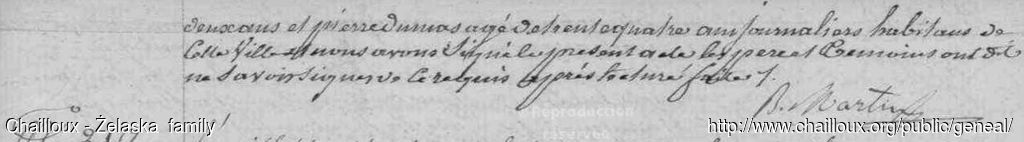 deux ans et pierre dumas agé de trente quatre ans journaliers habitans de
Cette Ville et nous avons Signé le present acte les pere et Temoins ont dit
ne Savoir Signer de Ce requis après lecture faite /.
B. Martin
Reproduction
reservee
Chailloux - Żelaska family
http://www.chailloux.org/public/geneal/